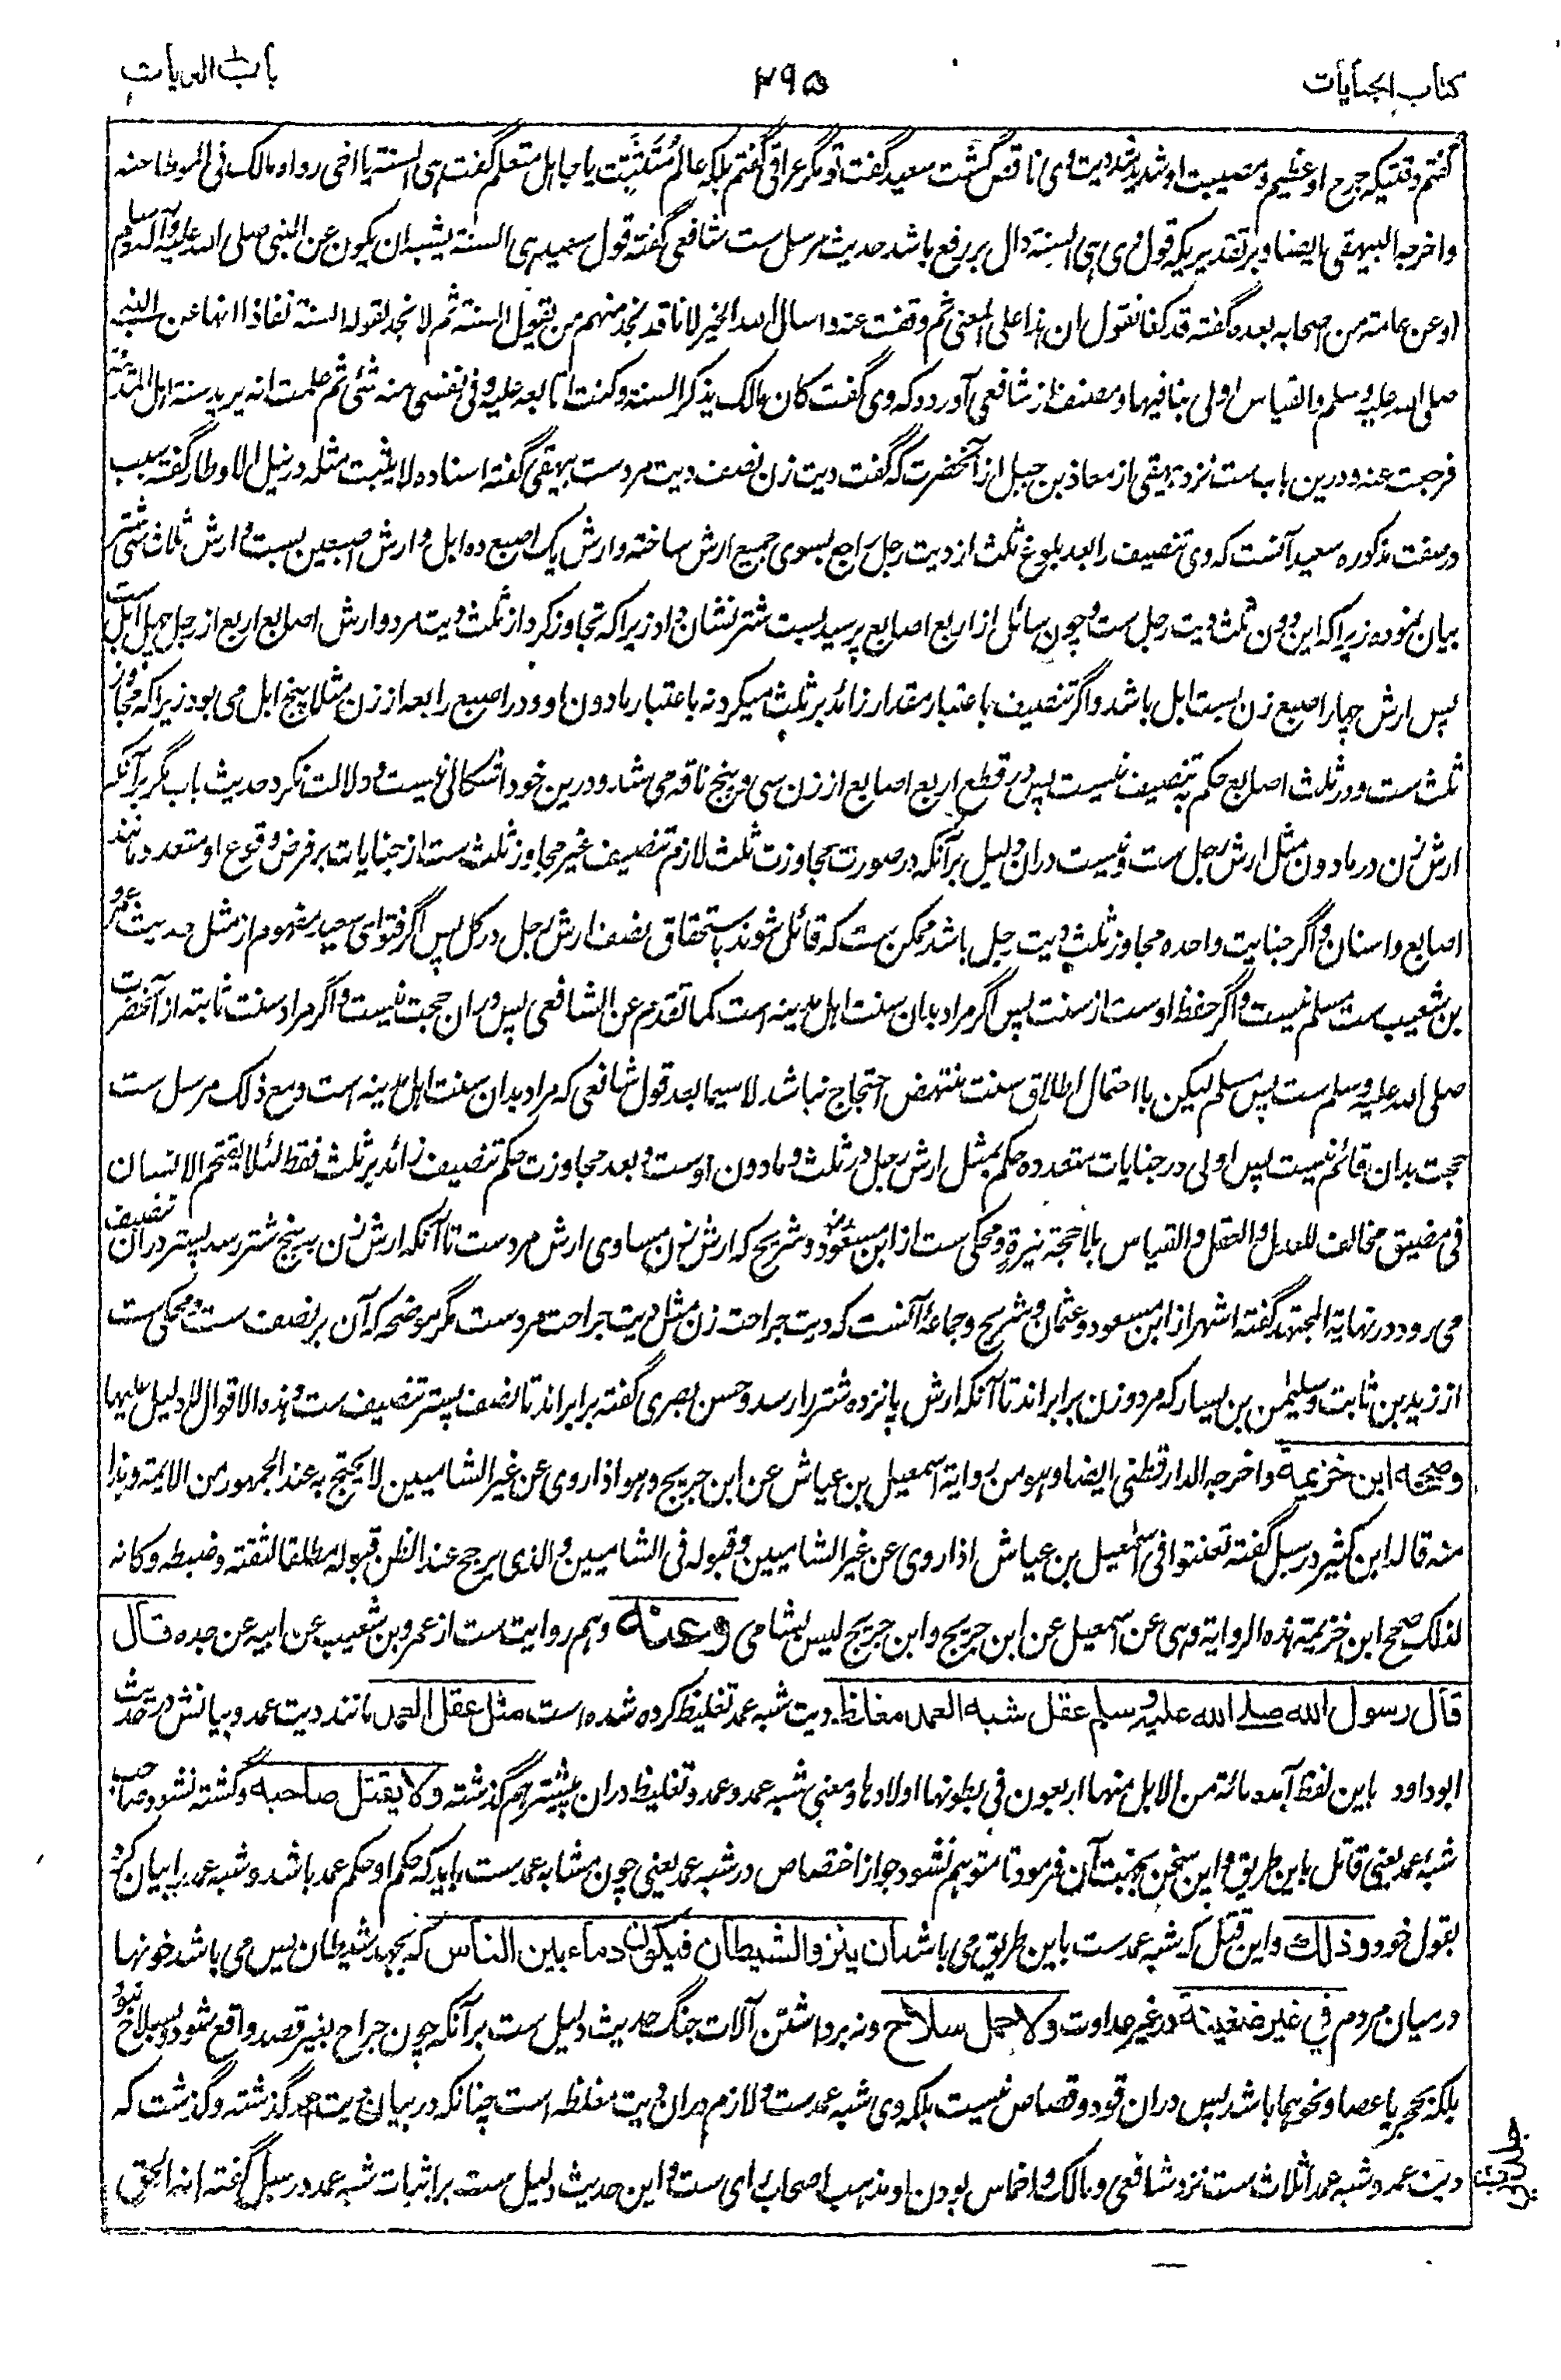 کتاب الجنایات
۲۹۵
باب الدیات
گفتم وقتیکه جرح او عظیم و مصیبت او شدید شد دیت وی ناقص گشت سعید گفت تو مگر عراقی گفتم بلکه عالم مُتَثَبِّت یا جاهل متعلم گفت هی السنة یا اخی رواه مالک فی الموطا عنه
واخرجه البیهقی ایضا و بر تقدیریکه قول وی هی السنة دال بر رفع باشد حدیث مرسل ست شافعی گفته قول سعید هی السنة یشبه ان یکون عن النبی صلی الله علیه وآله وسلم
او عن عامته من اصحابه بعده گفته قد کنا نقول ان هذا علی المعنی ثم وقفت عنه واسال الله الخیر لانا قد نجد منهم من یقول السنة ثم لا نجد لقوله السنة نفاذا انها عن النبی
صلی الله علیه وسلم والقیاس اولی بنا فیها و مصنف از شافعی آورده که وی گفت کان مالک یذکر السنة وکنت اتابعه علیه وفی نفسی منه شئ ثم علمت انه یرید سنة اهل المدینة
فرجعت عنه و درین باب ست نزد بیهقی از معاذ بن جبل از آنحضرت که گفت دیت زن نصف دیت مرد ست بیهقی گفته اسناده لا یثبت مثله در نیل الاوطار گفته سبب
در صفت مذکوره سعید آنست که وی تنصیف را بعد بلوغ ثلث از دیت رجل راجع بسوی جمیع ارش ساخته و ارش یک اصبع ده ابل و ارش اصبعین بیست و ارش ثلاث سی شتر
بیان نموده زیرا که این دون ثلث دیت رجل ست و چون سائل از اربع اصابع پرسید بیست شتر نشان داد زیرا که تجاوز کرد از ثلث دیت مرد و ارش اصابع اربع از رجل چهل ابل ست
پس ارش چهار اصبع زن بیست ابل باشد و اگر تنصیف باعتبار مقدار زائد بر ثلث میکرد نه باعتبار مادون او و در اصبع رابعه از زن مثلا پنج ابل می بود زیرا که مجاوز
ثلث ست و در ثلث اصابع حکم به تنصیف نیست پس در قطع اربع اصابع از زن سی و پنج ناقه می شد و درین خود اشکالی نیست و دلالت نکرد حدیث باب مگر برآنکه
ارش زن در مادون مثل ارش رجل ست و نیست دران دلیل برآنکه در صورت مجاوزت ثلث لازم تنصیف غیر مجاوز ثلث ست از جنایات بر فرض وقوع او متعدد مانند
اصابع و اسنان و اگر جنایت واحده مجاوز ثلث دیت رجل باشد ممکن ست که قائل شوند باستحقاق نصف ارش رجل در کل پس اگر فتوای سعید مفهوم از مثل حدیث عمرو
بن شعیب ست مسلم نیست و اگر حفظ اوست از سنت پس اگر مراد بدان سنت اهل مدینه است کما تقدم عن الشافعی پس دران حجت نیست و اگر مراد سنت ثابته از آنحضرت
صلی الله علیه وسلم ست پس مسلم لیکن با احتمال اطلاق سنت منتهض احتجاج نباشد لا سیما بعد قول شافعی که مراد بدان سنت اهل مدینه است و مع ذلک مرسل ست
حجت بدان قائم نیست پس اولی در جنایات متعدده حکم بمثل ارش رجل در ثلث و مادون اوست و بعد مجاوزت حکم تنصیف زائد بر ثلث فقط لئلا یقتحم الانسان
فی مضیق مخالف للعدل والعقل والقیاس بلا حجة نیرة و محکی ست از ابن مسعود و شریح که ارش زن مساوی ارش مرد ست تا آنکه ارش زن به پنج شتر رسد پستر دران تنصیف
می رود در نهایة المجتهد گفته اشهر از ابن مسعود و عثمان و شریح و جماعة آنست که دیت جراحت زن مثل دیت جراحت مرد ست مگر موضحه که آن بر نصف ست و محکی ست
از زید بن ثابت و سلیمٰن بن یسار که مرد و زن برابر اند تا آنکه ارش پانزده شتر را رسد و حسن بصری گفته برابر اند تا نصف پستر تنصیف ست وهذه الاقوال لا دلیل علیها
وصححه ابن خزیمة واخرجه الدارقطنی ایضا وهو من روایة اسمعیل بن عیاش عن ابن جریج وهو اذا روی عن غیر الشامیین لا یحتج به عند الجمهور من الایمة وهذا
منه قاله ابن کثیر در سبل گفته تعنتوا فی اسمٰعیل بن عیاش اذا روی عن غیر الشامیین وقبوله فی الشامیین والذی یرجح عند الظن قبوله مطلقا لثقته وضبطه وکانه
لذلک صحح ابن خزیمة هذه الروایة وهی عن اسمعیل عن ابن جریج وابن جریج لیس بشامی وعنه وهم روایت ست از عمرو بن شعیب عن ابیه عن جده قال
قال رسول الله صلے الله علیه وسلم عقل شبه العمد مغلظ دیت شبه عمد تغلیظ کرده شده است مثل عقل العمد مانند دیت عمد و بیانش در حدیث
ابوداود باین لفظ آمده مائة من الابل منها اربعون فی بطونها اولادها و معنی شبه عمد و عمد و تغلیظ دران پیشتر هم گذشته ولا یقتل صاحبه و کشته نشود صاحب
شبه عمد یعنی قاتل باین طریق و این سخن بجهت آن فرمود تا متوهم نشود جواز اقتصاص در شبه عمد یعنی چون مشابه عمد ست باید که حکم او حکم عمد باشد و شبه عمد را بیان کرد
بقول خود وذلك و این قتل که شبه عمد ست باین طریق می باشد ان ینزو الشیطان فیکون دماء بین الناس که بجهد شیطان پس می باشد خونها
درمیان مردم فی غیر ضغینة در غیر عداوت ولا حمل سلاح و نه برداشتن آلات جنگ حدیث دلیل ست برآنکه چون جراح بغیر قصد واقع شود و بسلاح نبود
بلکه بحجر یا عصا و نحوهما باشد پس دران قود و قصاص نیست بلکه وی شبه عمد ست و لازم دران دیت مغلظه است چنانکه در بیان دیت عمد گذشته و گذشت که
دیت عمد و شبه عمد اثلاث ست نزد شافعی و مالک و اخماس بودن او مذهب اصحاب رای ست و این حدیث دلیل ست بر اثبات شبه عمد در سبل گفته انه الحق